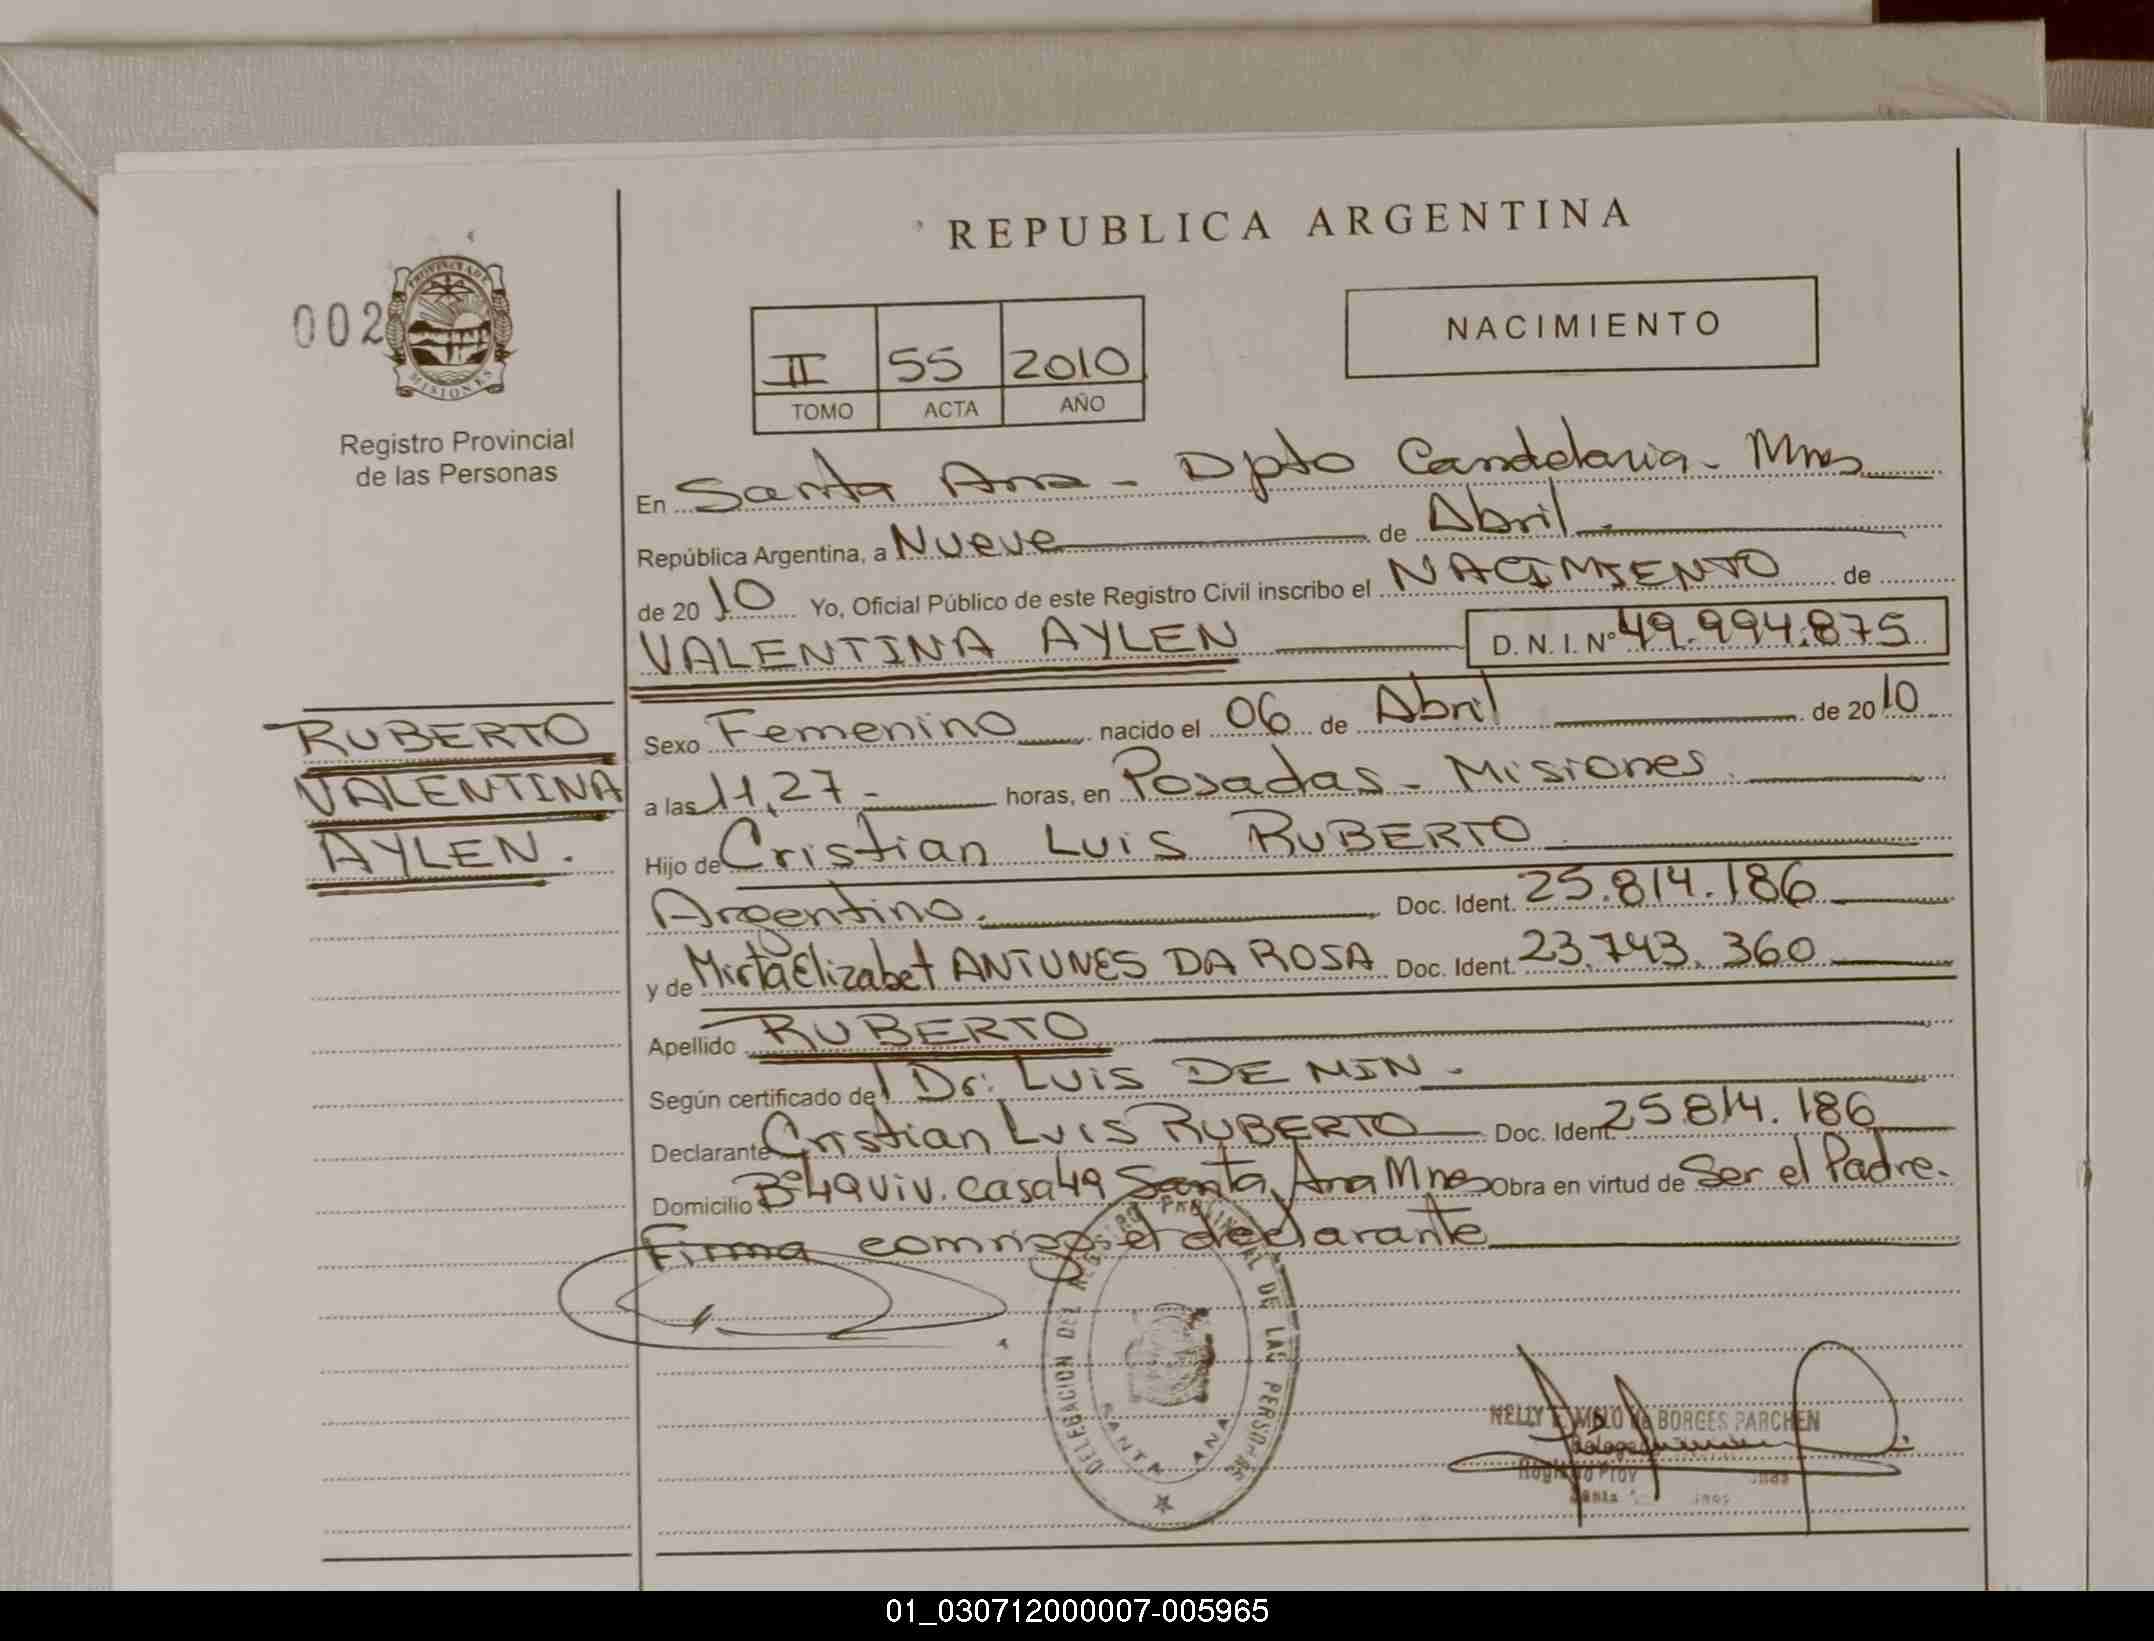 REPUBLICA ARGENTINA
002
PROVINCIA DE
MISIONES
Registro Provincial
de las Personas
II 55 2010
TOMO ACTA AÑO
NACIMIENTO
En Santa Ana - Dpto Candelaria - Mnes
República Argentina, a Nueve de Abril.
de 2010 Yo, Oficial Público de este Registro Civil inscribo el NACIMIENTO de
VALENTINA AYLEN D. N. I. N° 49.994.875
RUBERTO
VALENTINA
AYLEN.
Sexo Femenino nacido el 06 de Abril de 2010
a las 11,27 - horas, en Posadas - Misiones.
Hijo de Cristian Luis RUBERTO
Argentino. Doc. Ident. 25.814.186
y de Mirta Elizabet ANTUNES DA ROSA Doc. Ident. 23.743.360
Apellido RUBERTO
Según certificado de Dr. Luis DE MIN.
Declarante Cristian Luis RUBERTO Doc. Ident. 25814.186
Domicilio B° 49 viv. casa 49 Santa Ana Mnes Obra en virtud de Ser el Padre.
Firma conmigo el declarante
DELEGACION DEL REGISTRO PROVINCIAL DE LAS PERSONAS
SANTA ANA
NELLY E. MELO de BORGES PARCHEN
01_030712000007-005965